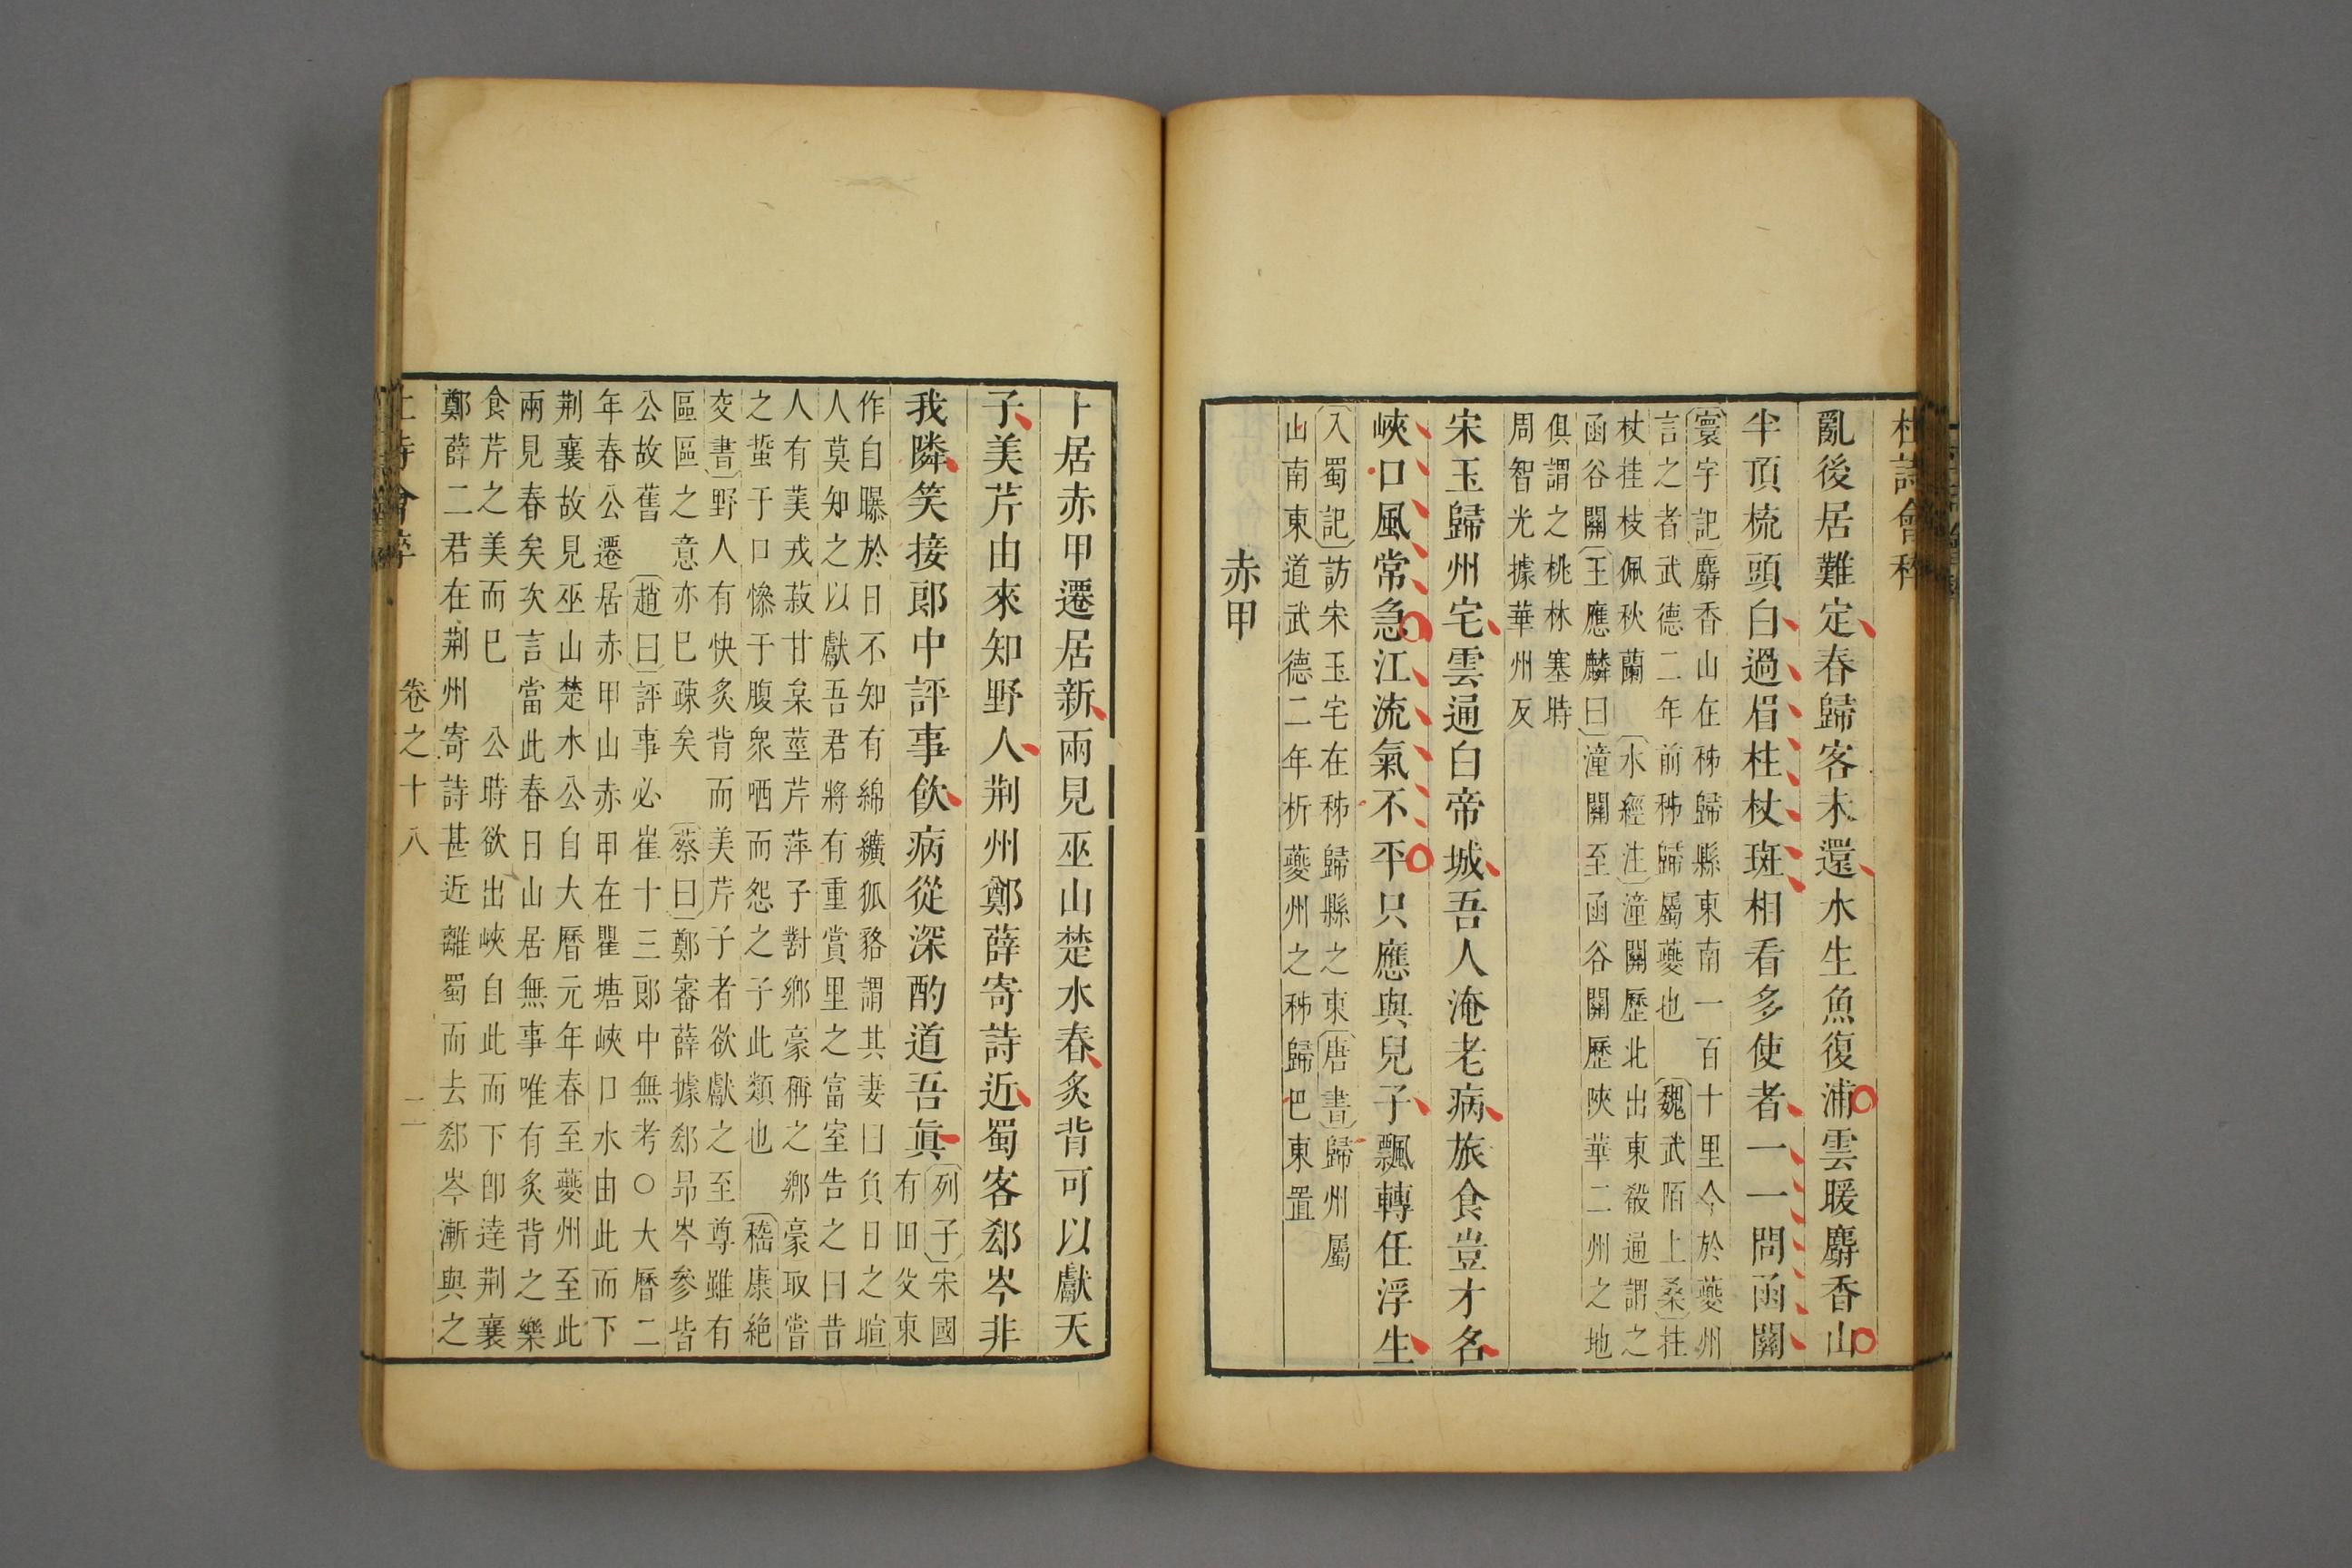 杜詩會稡
亂後居難定春歸客未還水生魚復浦雲暖麝香山
半頂梳頭白過眉柱杖斑相看多使者一一問函關
寰宇記麝香山在秭歸縣東南一百十里今於夔州
言之者武德二年前秭歸屬夔也 魏武陌上桑拄
杖桂枝佩秋蘭 水經注潼關歷北出東崤通謂之
函谷關王應麟曰潼關至函谷關歷陝華二州之地
俱謂之桃林塞時
周智光據華州反
宋玉歸州宅雲通白帝城吾人淹老病旅食豈才名
峽口風常急江流氣不平只應與兒子飄轉任浮生
入蜀記訪宋玉宅在秭歸縣之東唐書歸州屬
山南東道武德二年析夔州之秭歸巴東置
赤甲
卜居赤甲遷居新兩見巫山楚水春炙背可以獻天
子美芹由來知野人荆州鄭薛寄詩近蜀客郄岑非
我隣笑接郎中評事飲病從深酌道吾眞
列子宋國
有田父東
作自曝於日不知有綿纊狐貉謂其妻曰負日之暄
人莫知之以獻吾君將有重賞里之富室告之曰昔
人有美戎菽甘枲莖芹萍子對鄉豪稱之鄉豪取嘗
之蜇于口慘于腹衆哂而怨之子此類也 嵇康絕
交書野人有快炙背而美芹子者欲獻之至尊雖有
區區之意亦巳疎矣 蔡曰鄭審薛據郄昂岑參皆
公故舊 趙曰評事必崔十三郎中無考○大曆二
年春公遷居赤甲山赤甲在瞿塘峽口水由此而下
荆襄故見巫山楚水公自大曆元年春至夔州至此
兩見春矣次言當此春日山居無事唯有炙背之樂
食芹之美而巳 公時欲出峽自此而下卽達荆襄
鄭薛二君在荆州寄詩甚近離蜀而去郄岑漸與之
杜詩會稡 卷之十八 二